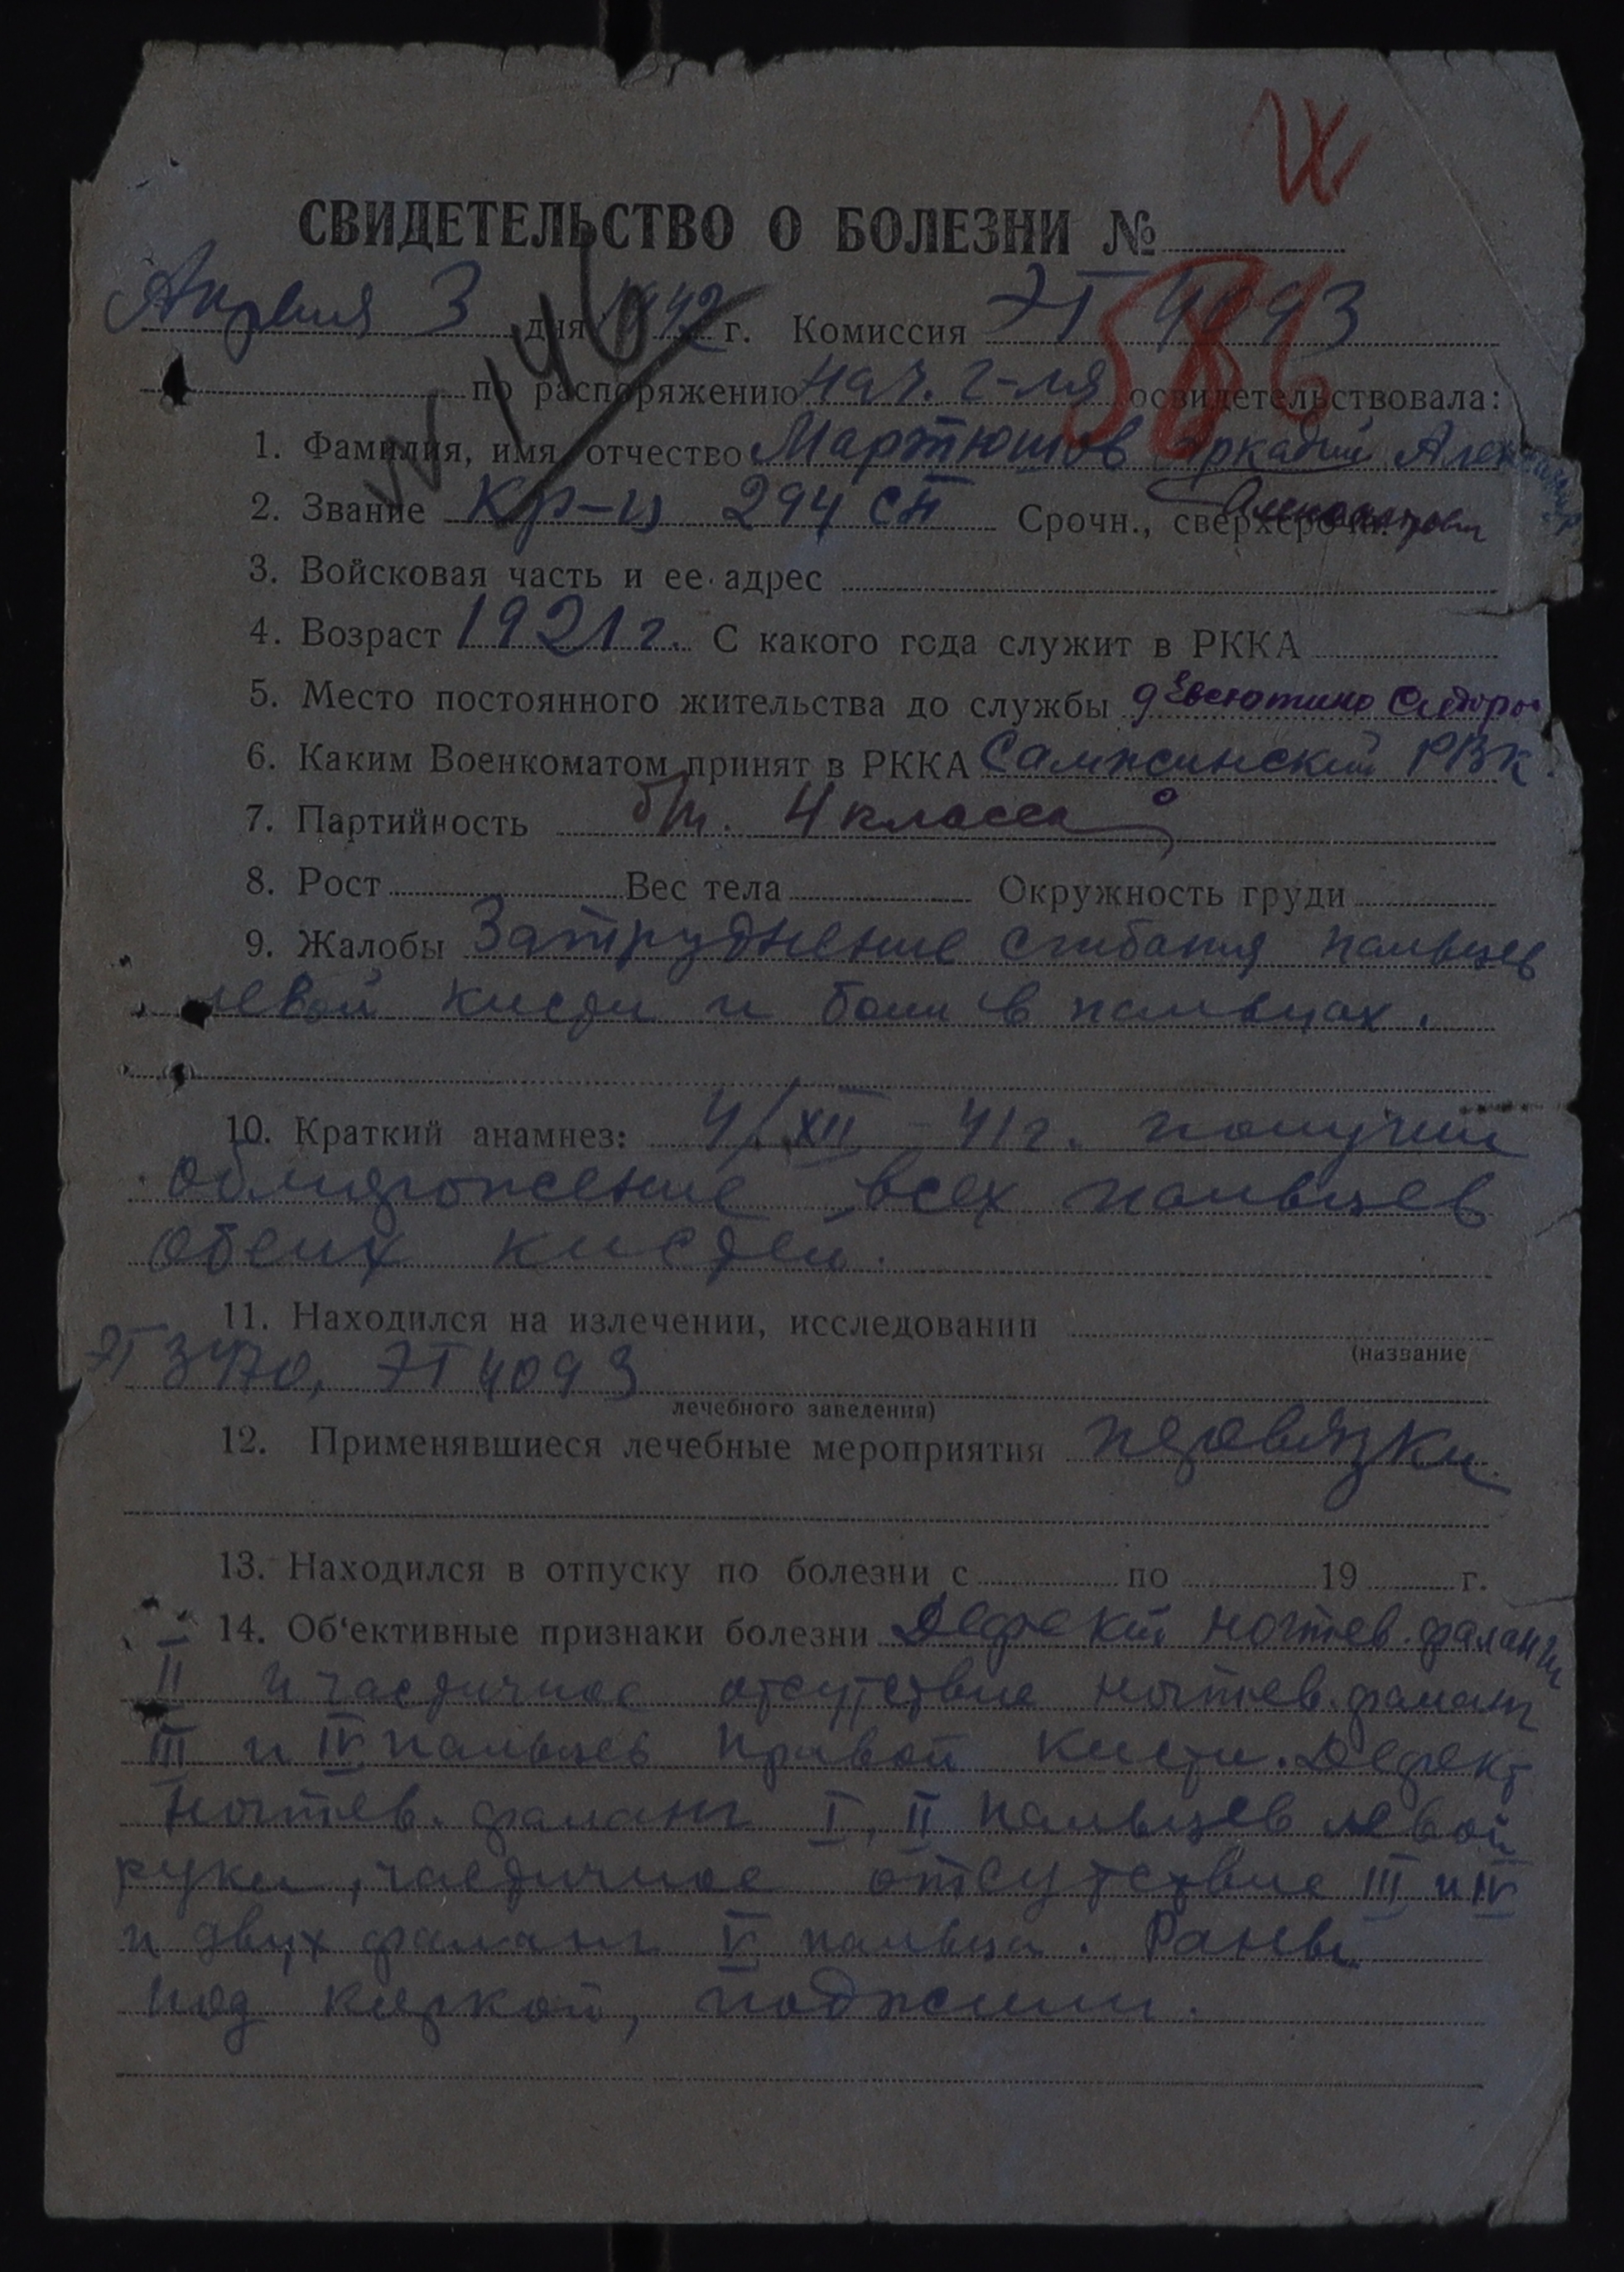 IX
СВИДЕТЕЛЬСТВО О БОЛЕЗНИ №
Апреля 3 дня 1942 г. Комиссия ЭГ 4093
586
N 146
по распоряжению нач. г-ля освидетельствовала:
1. Фамилия, имя, отчество Мартюшов Аркадий
Александрович
2. Звание Кр-ц 294 сп Срочн., сверхсрочн.
3. Войсковая часть и ее адрес
4. Возраст 1921 г. С какого года служит в РККА
5. Место постоянного жительства до службы д Евсютино
6. Каким Военкоматом принят в РККА Сямженский РВК.
7. Партийность б/п. 4 класса
8. Рост Вес тела Окружность груди
9. Жалобы Затруднение сгибания пальцев
левой кисти и боли в пальцах.
10. Краткий анамнез: 4/XII - 41 г. получил
обморожение всех пальцев
обеих кистей.
11. Находился на излечении, исследовании
(название
ЭГ 3470, ЭГ 4093
лечебного заведения)
12. Применявшиеся лечебные мероприятия перевязки
13. Находился в отпуску по болезни с по 19 г.
14. Об'ективные признаки болезни Дефект ногтев. фаланги
II и частичное отсутствие ногтев. фаланг
III и IV пальцев правой кисти. Дефект
ногтев. фаланг I, II пальцев левой
руки, частичное отсутствие III и IV
и двух фаланг V пальца. Раны
под коркой, поджили.